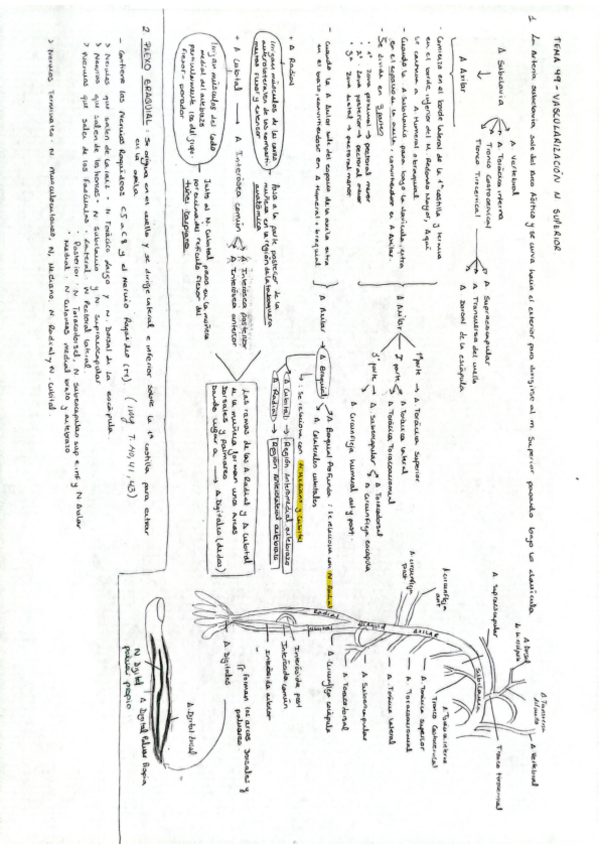 TEMA 49 - VASCULARIZACIÓN N SUPERIOR
1 La Arteria subclavia sale del Arco Aórtico y se curva hacia el exterior para dirigirse al m. Superior pasando bajo la clavícula
A Subclavia
A vertebral
A Torácica interna
Tronco Costocervical
Tronco Tirocervical
A Supraescapular
A Transversa del cuello
A Dorsal de la escápula
↓
A Axilar
- Comienza en el borde lateral de la 1ª costilla y termina
en el borde inferior del M. Redondo Mayor. Aquí
A Humeral o braquial
- Cuando la A Subclavia pasa bajo la clavícula, entra
en el espacio de la axila, convirtiéndose en A Axilar.
- Se divide en 3 partes
1ª zona proximal → pectoral menor
2ª zona posterior → pectoral menor
3ª zona distal → pectoral menor
- Cuando la A Axilar sale del espacio de la axila entra
en el brazo convirtiéndose en A Humeral o braquial
A Axilar
1ª parte → A Torácica Superior
2ª parte
A Torácica lateral
A Torácica Toracoacromial
3ª parte → A Subescapular
A Toracodorsal
A Circunfleja escápula
A Circunfleja humeral ant y post.
A Axilar
A Braquial
A Braquial Profunda : se relaciona con N Radial
A Colaterales cubitales
: se relaciona con N Mediano y Cubital
A Cubital → Región Anteromedial antebrazo
A Radial → Región Anterolateral antebrazo
+ A Radial
Pasa a la parte posterior de la
muñeca en la región de la tabaquera
anatómica
+ A Cubital → A Interósea común
A Interósea posterior
A Interósea anterior
Irrigan músculos del lado
medial del antebrazo
Junto a N. Cubital pasa en la muñeca
por encima del retináculo flexor del
túnel carpiano
Las ramas de las A Radial y A Cubital
a la muñeca forman unos Arcos
Dorsales y palmares
dando lugar a → A Digitales (dedos)
2 PLEXO BRAQUIAL : Se origina en el cuello y se dirige lateral e inferior sobre la 1ª costilla para entrar
en la axila
- Contiene los Nervios Raquídeos C5 a C8 y el Nervio Raquídeo (T1) (img T. 40, 41, 43)
> Nervios que salen de la raíz : N Torácico largo y N. Dorsal de la escápula.
> Nervios que salen de los troncos - N Subclavio y N Supraescapular
> Nervios que salen de los fascículos
Lateral: N Pectoral lateral.
Posterior: N Toracodorsal, N subescapular sup e inf y N Axilar
Medial: N Cutáneo medial brazo y antebrazo
> Nervios Terminales: N Musculocutáneo, N. Mediano, N. Radial y N. cubital
A Vertebral
Tronco tirocervical
A Supraescapular
Subclavia
A Torácica interna
Tronco Costocervical
A Torácica Superior
A Toracoacromial
A Torácica lateral
A Subescapular
A Toracodorsal
A Circunfleja escápula
A circunfleja
ant
A circunfleja
post
AXILAR
RADIAL
CUBITAL
Interósea post
Interósea común
Interósea anterior
A Digitales
Forman los arcos Dorsales y
palmares
A Digital Dorsal
A Digital Palmar Propia
N Digital
palmar propio